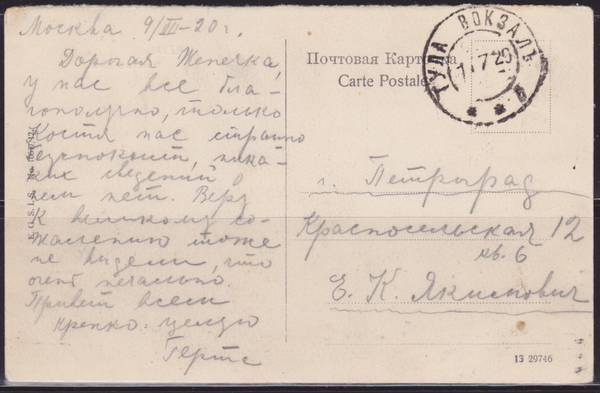 Москва 9/III-20 г.
Дорогая Женечка,
у нас все бла-
гополучно, только
Костя нас страшно
безпокоит, ника-
ких сведений о
нем нет. Веру
к великому со-
жалению тоже
не видели, что
очень печально.
Привет всем
Крепко целую
Почтовая Карточка
Carte Postale
ТУЛА ВОКЗАЛЪ
г. Петроград
Красносельская 12
кв. 6
Е. К. Якимович
13 29746